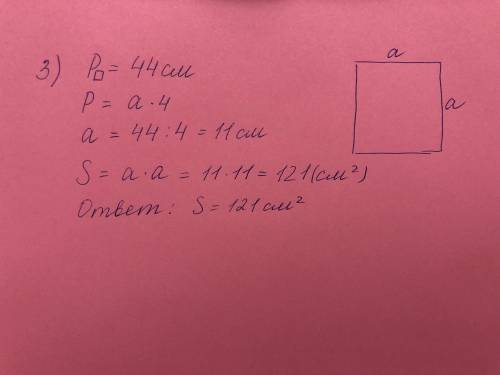 3) P□ = 44 см
P = a · 4
a = 44 : 4 = 11 см
S = a · a = 11 · 11 = 121 (см²)
Ответ: S = 121 см²
a
a